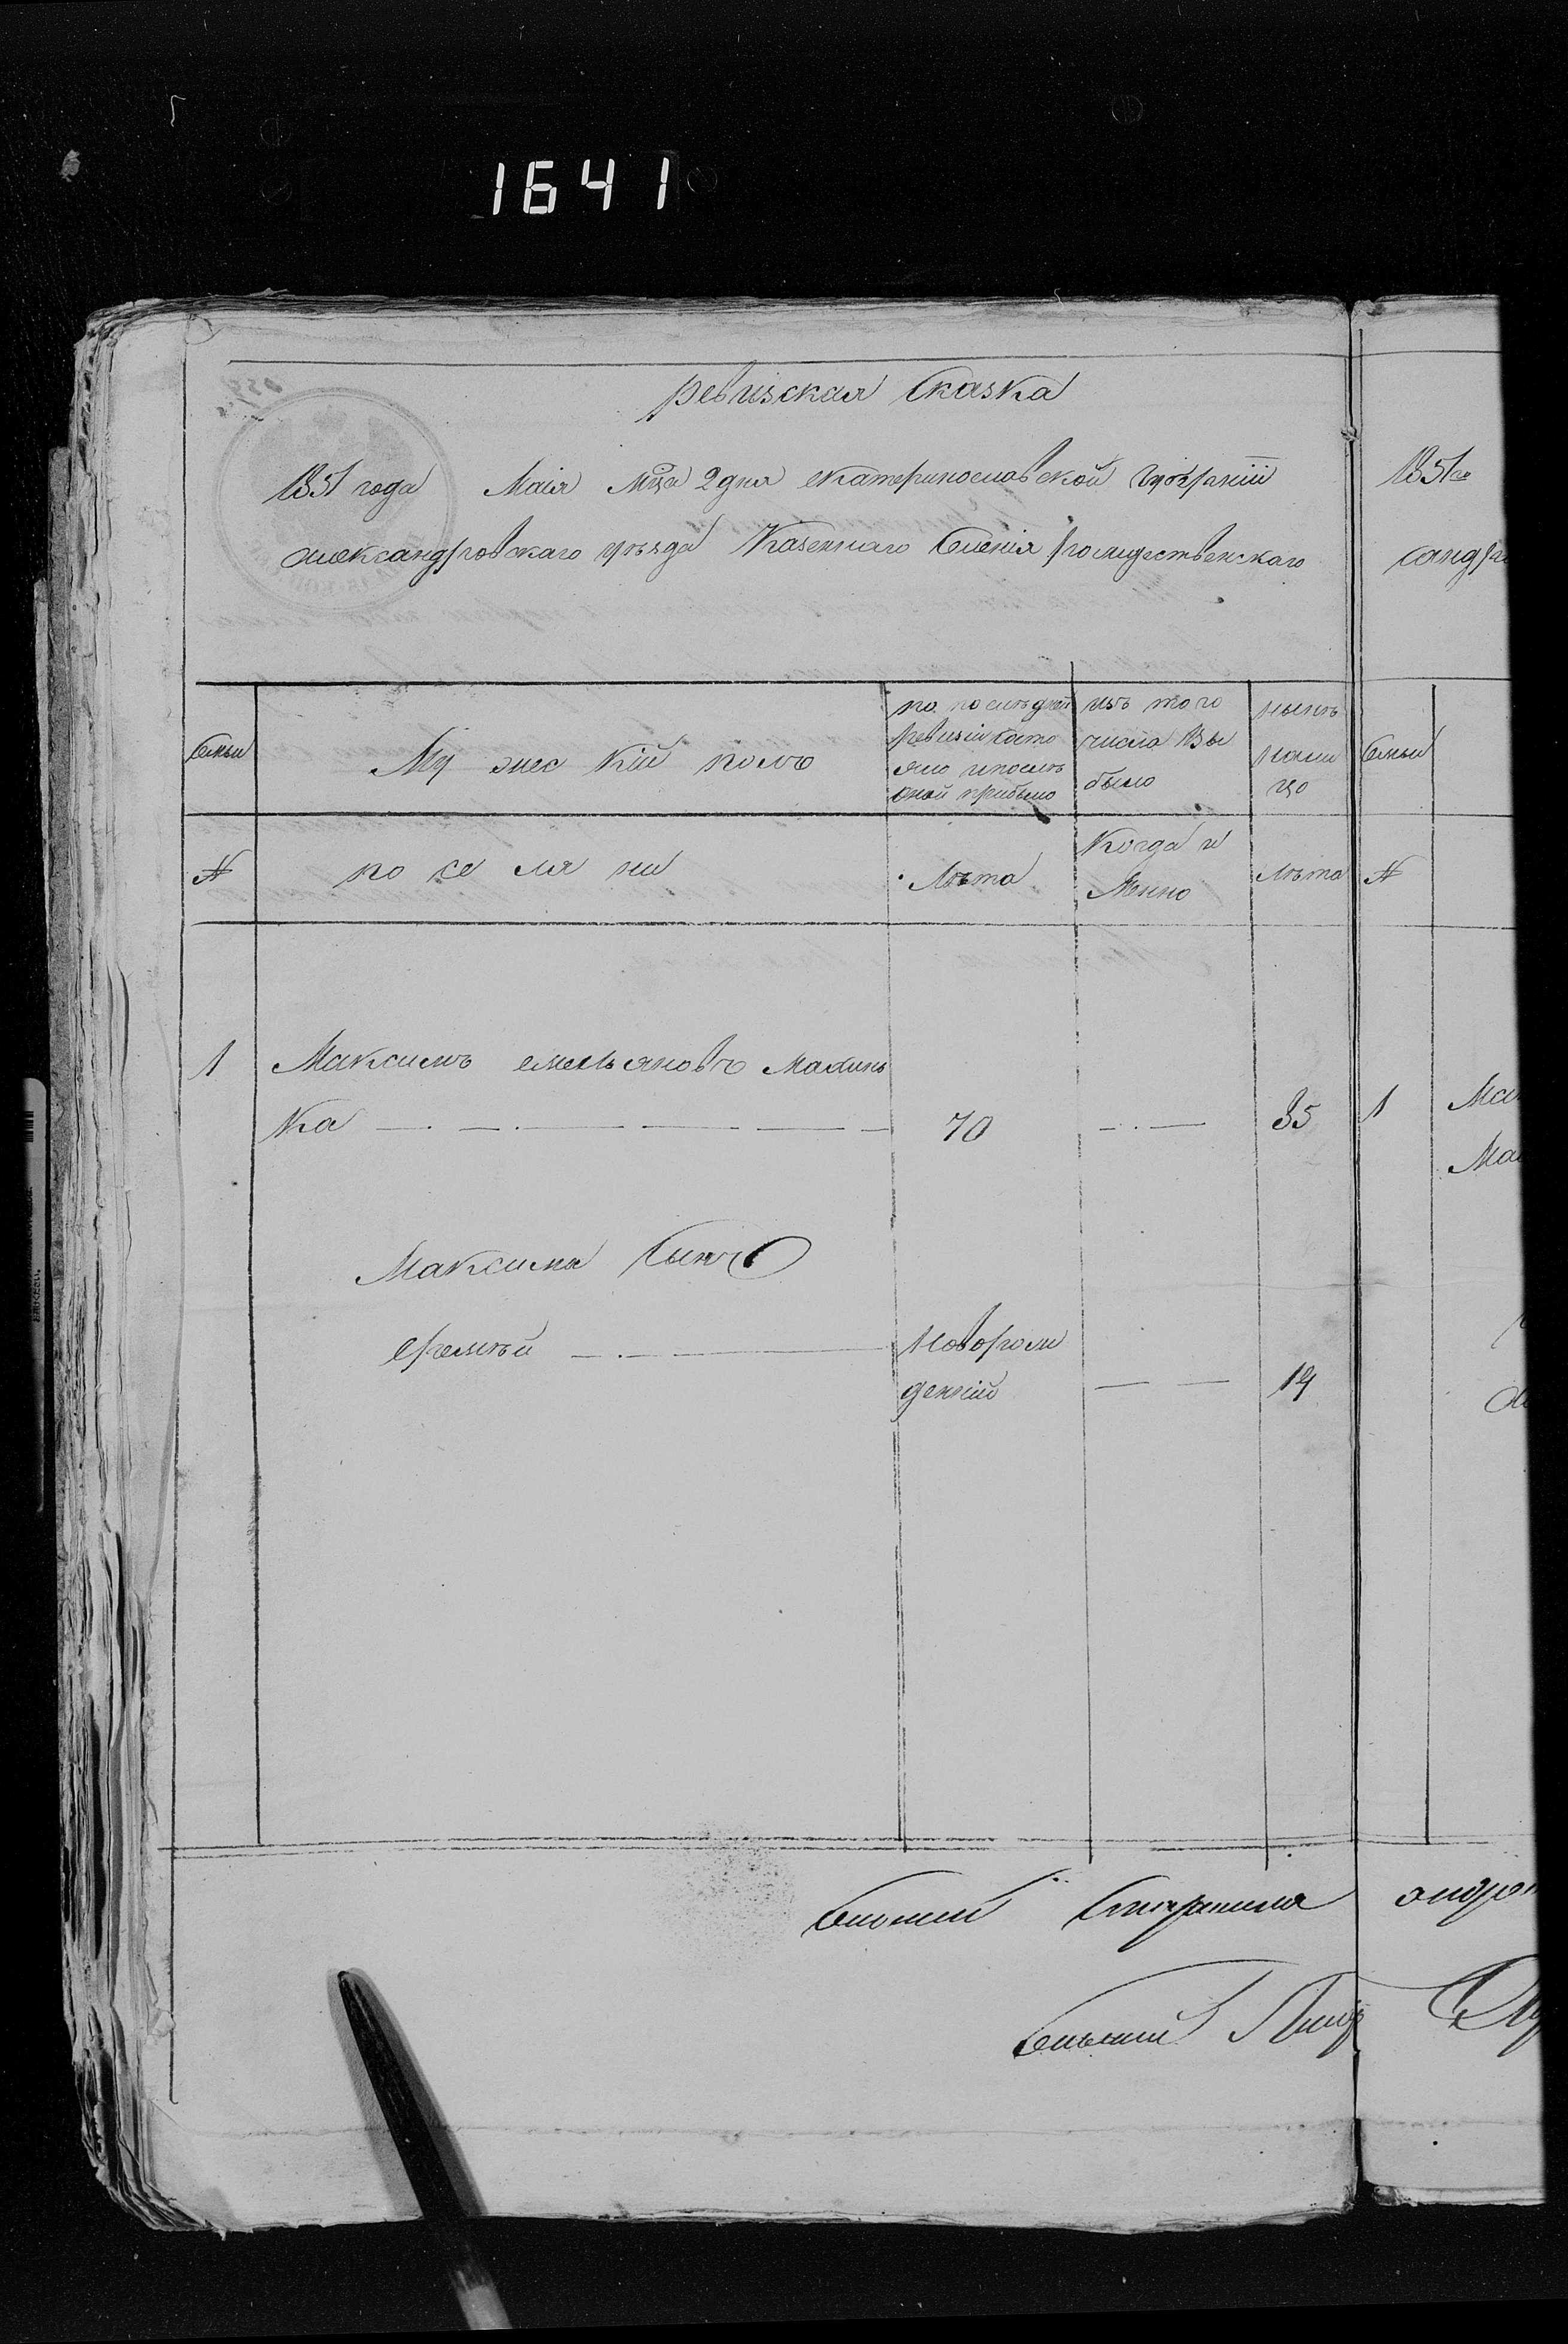 1641
ревизская сказка
1851 года Маія мца 2 дня екатеринославской губернии
александровскаго уезда Казеннаго Селенія рождественскаго
Семьи
Мужескій полъ
по последней
ревизіи состо
яло и после
оной прибыло
изъ того
числа Вы
было
ныне
нали
цо
№
поселяни
Лета
Когда и
Менно
лета
1
Максимъ емельяновъ Махинь
ка
70
85
Максима Сынъ
еремей
Новорож
деный
14
Сельский Старшина
Сельский Писар
1851го
сандро
Семьи
№
1
Ма
Ма